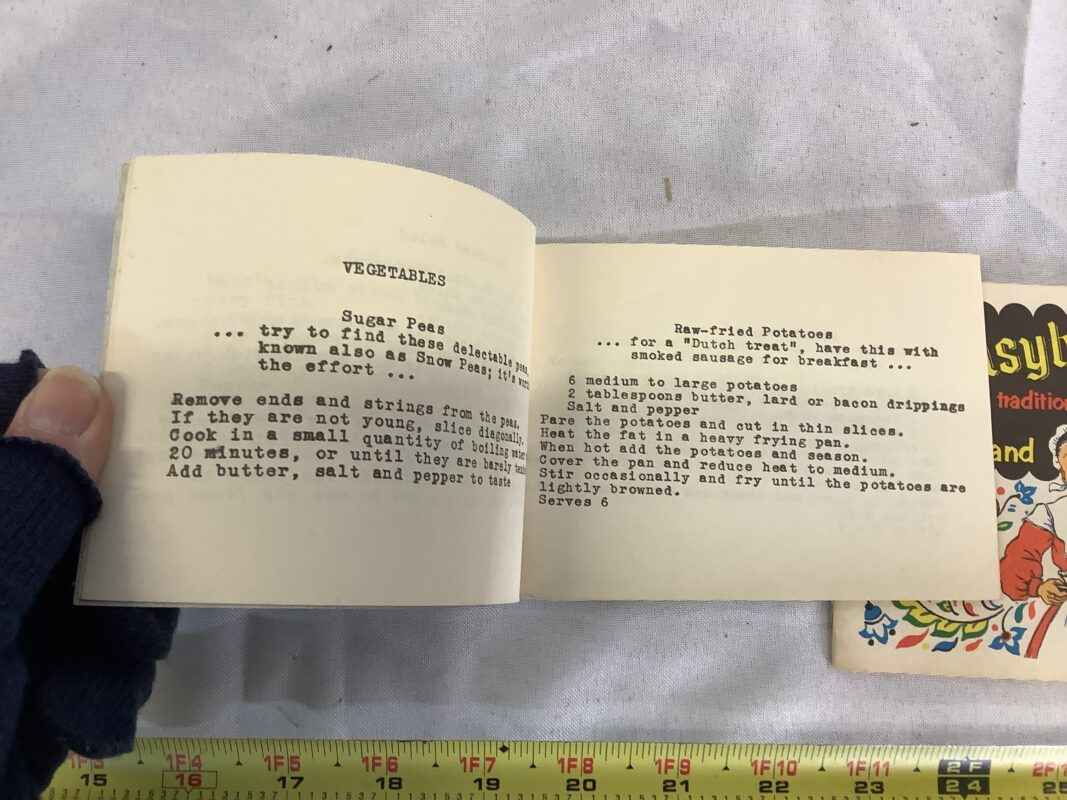 VEGETABLES
Sugar Peas
... try to find these delectable peas,
known also as Snow Peas; it's
the effort ...
Remove ends and strings from the peas.
If they are not young, slice diagonally.
Cook in a small quantity of boiling water
20 minutes, or until they are barely
Add butter, salt and pepper to taste
Raw-fried Potatoes
... for a "Dutch treat", have this with
smoked sausage for breakfast ...
6 medium to large potatoes
2 tablespoons butter, lard or bacon drippings
Salt and pepper
Pare the potatoes and cut in thin slices.
Heat the fat in a heavy frying pan.
When hot add the potatoes and season.
Cover the pan and reduce heat to medium.
Stir occasionally and fry until the potatoes are
lightly browned.
Serves 6
tradition
and
1F4 1F5 1F6 1F7 1F8 1F9 1F10 1F11 2F
15 16 17 18 19 20 21 22 23 24 25